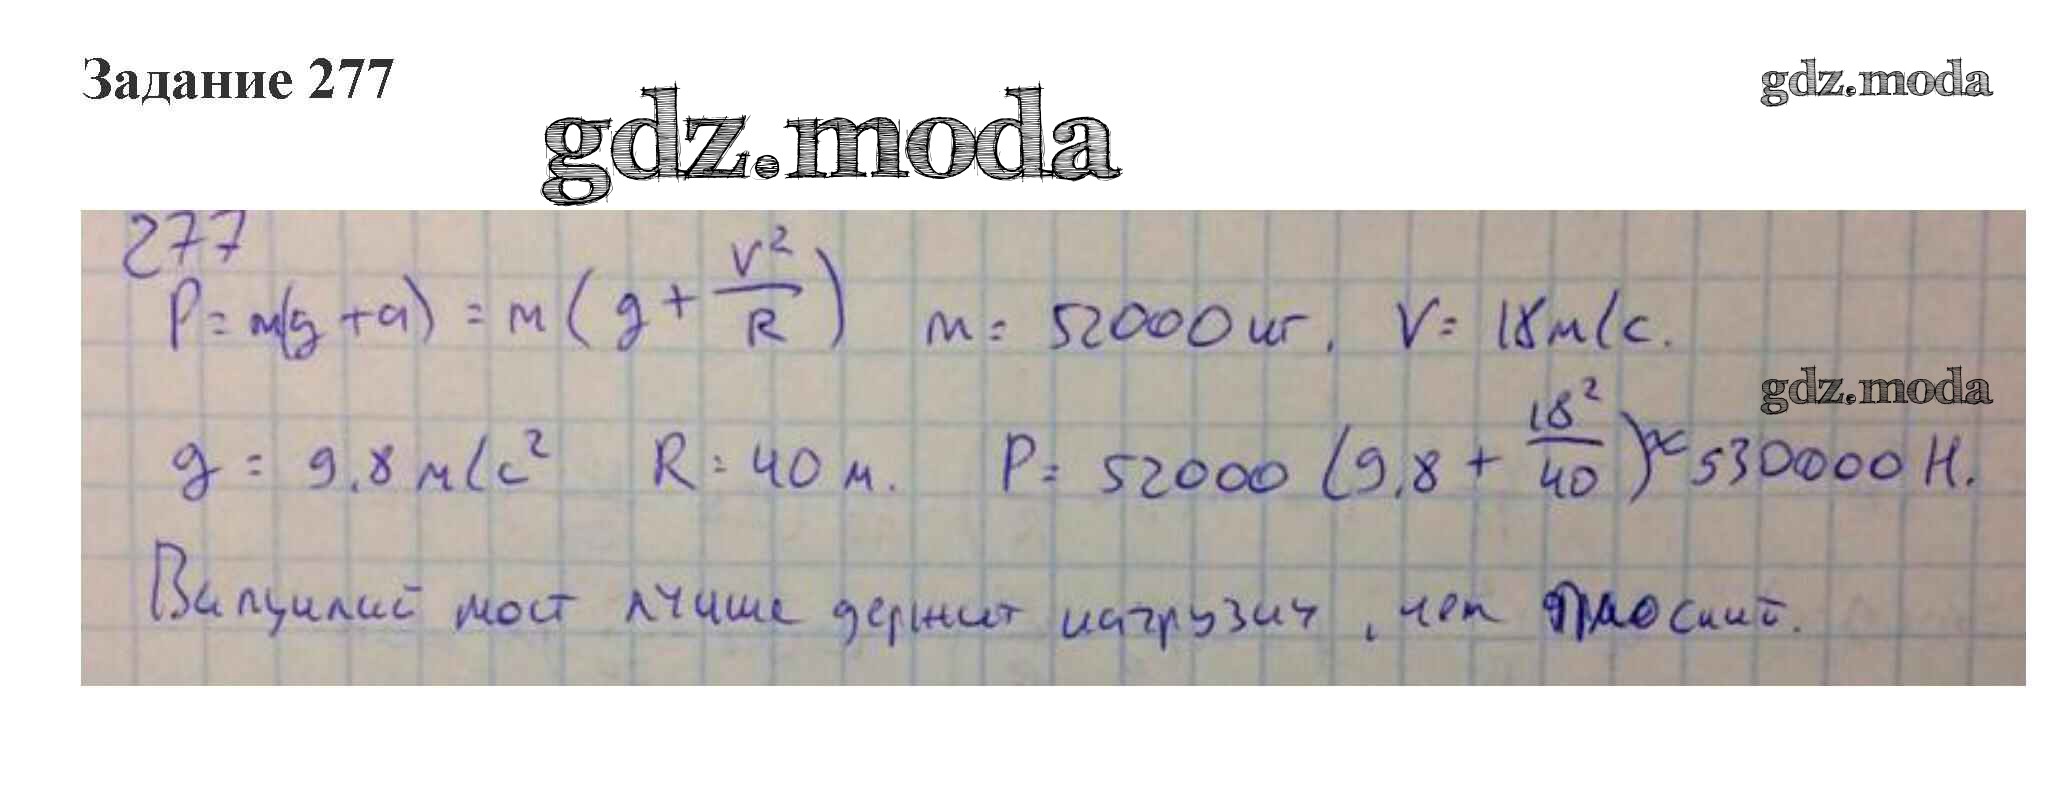 Задание 277
gdz.moda
gdz.moda
277
P = m(g + a) = m ( g + V²/R ) m = 52000 кг. V = 18 м/с.
gdz.moda
g = 9,8 м/с² R = 40 м. P = 52000 (9,8 + 18²/40) ≈ 530000 Н.
Выпуклый мост лучше держит нагрузку, чем плоский.